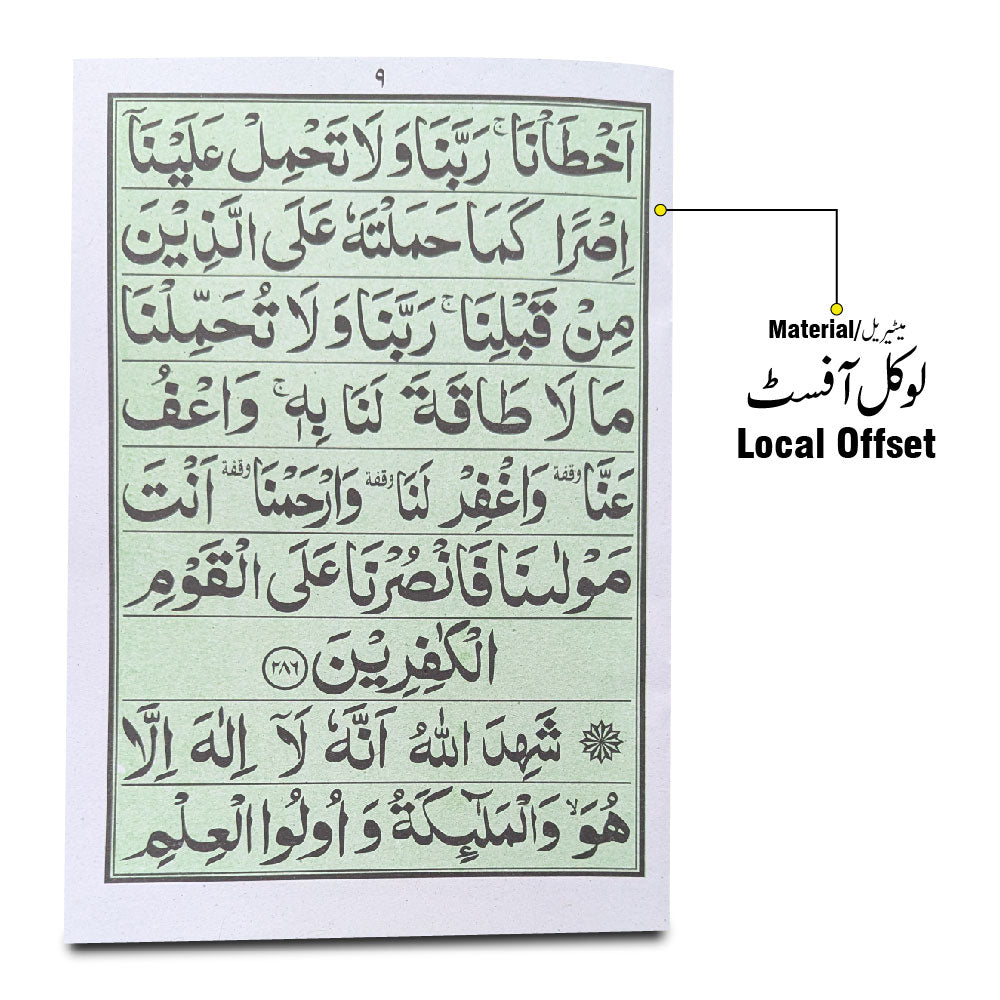 ۹
اَخْطَاْنَا ۚ رَبَّنَا وَ لَا تَحْمِلْ عَلَيْنَاۤ
اِصْرًا كَمَا حَمَلْتَهٗ عَلَى الَّذِيْنَ
مِنْ قَبْلِنَا ۚ رَبَّنَا وَ لَا تُحَمِّلْنَا
مَا لَا طَاقَةَ لَنَا بِهٖ ۚ وَاعْفُ
عَنَّا وقفة وَاغْفِرْ لَنَا وقفة وَارْحَمْنَا وقفة اَنْتَ
مَوْلٰىنَا فَانْصُرْنَا عَلَى الْقَوْمِ
الْكٰفِرِيْنَ ۲۸۶
شَهِدَ اللّٰهُ اَنَّهٗ لَاۤ اِلٰهَ اِلَّا
هُوَ ۙ وَالْمَلٰٓئِكَةُ وَ اُولُوا الْعِلْمِ
Material/میٹیریل
لوکل آفسٹ
Local Offset